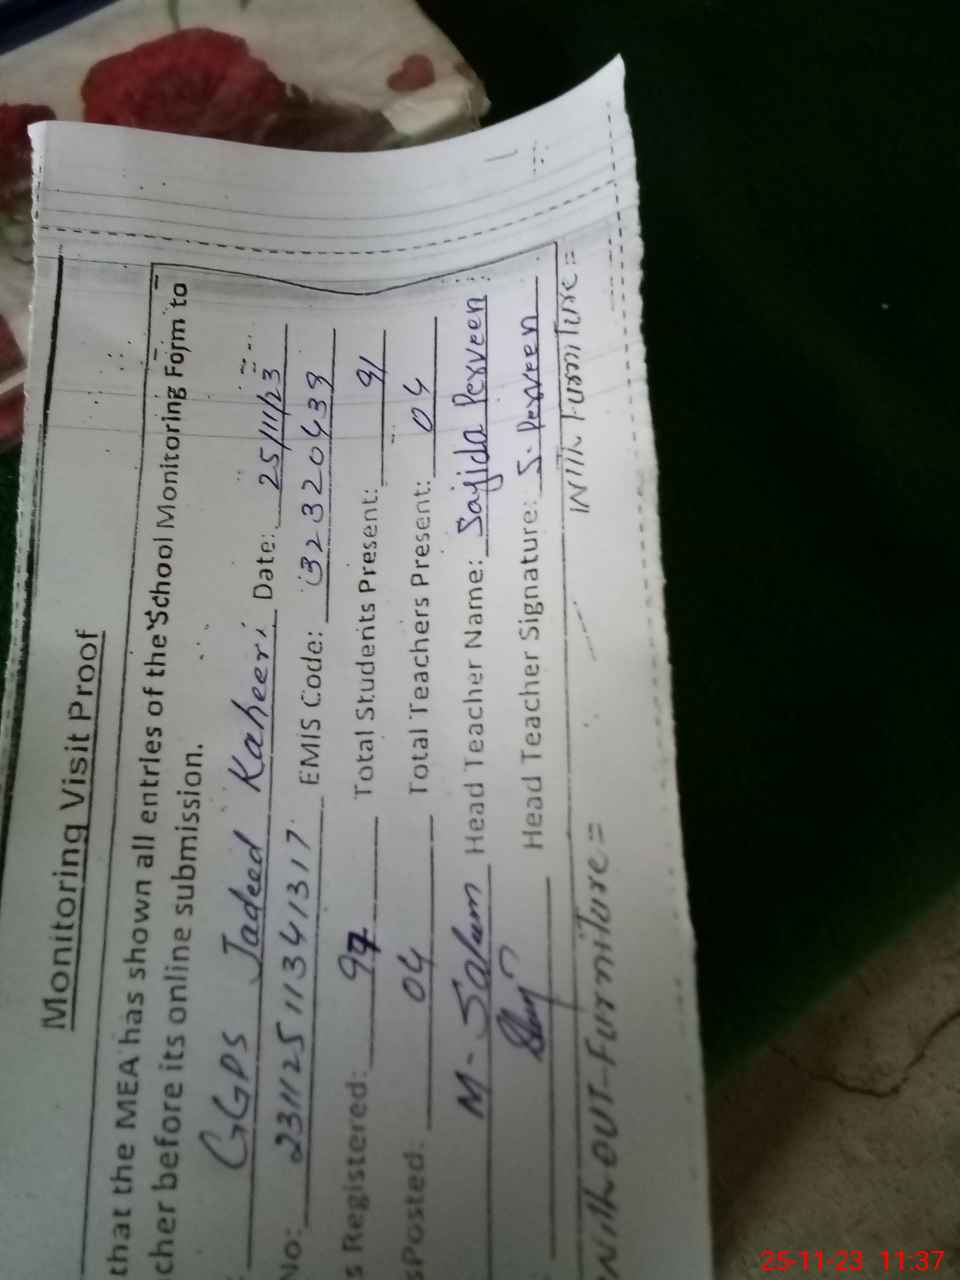 Monitoring Visit Proof
that the MEA has shown all entries of the School Monitoring Form to
cher before its online submission.
GGPS Jadeed Kaheeri Date: 25/11/23
No: 23112511341317 EMIS Code: 32320439
s Registered: 97 Total Students Present: 91
sPosted: 04 Total Teachers Present: 04
M. Salum Head Teacher Name: Sajida Perveen
Head Teacher Signature: S. Perveen
With out-Furniture= With Furniture=
25-11-23 11:37